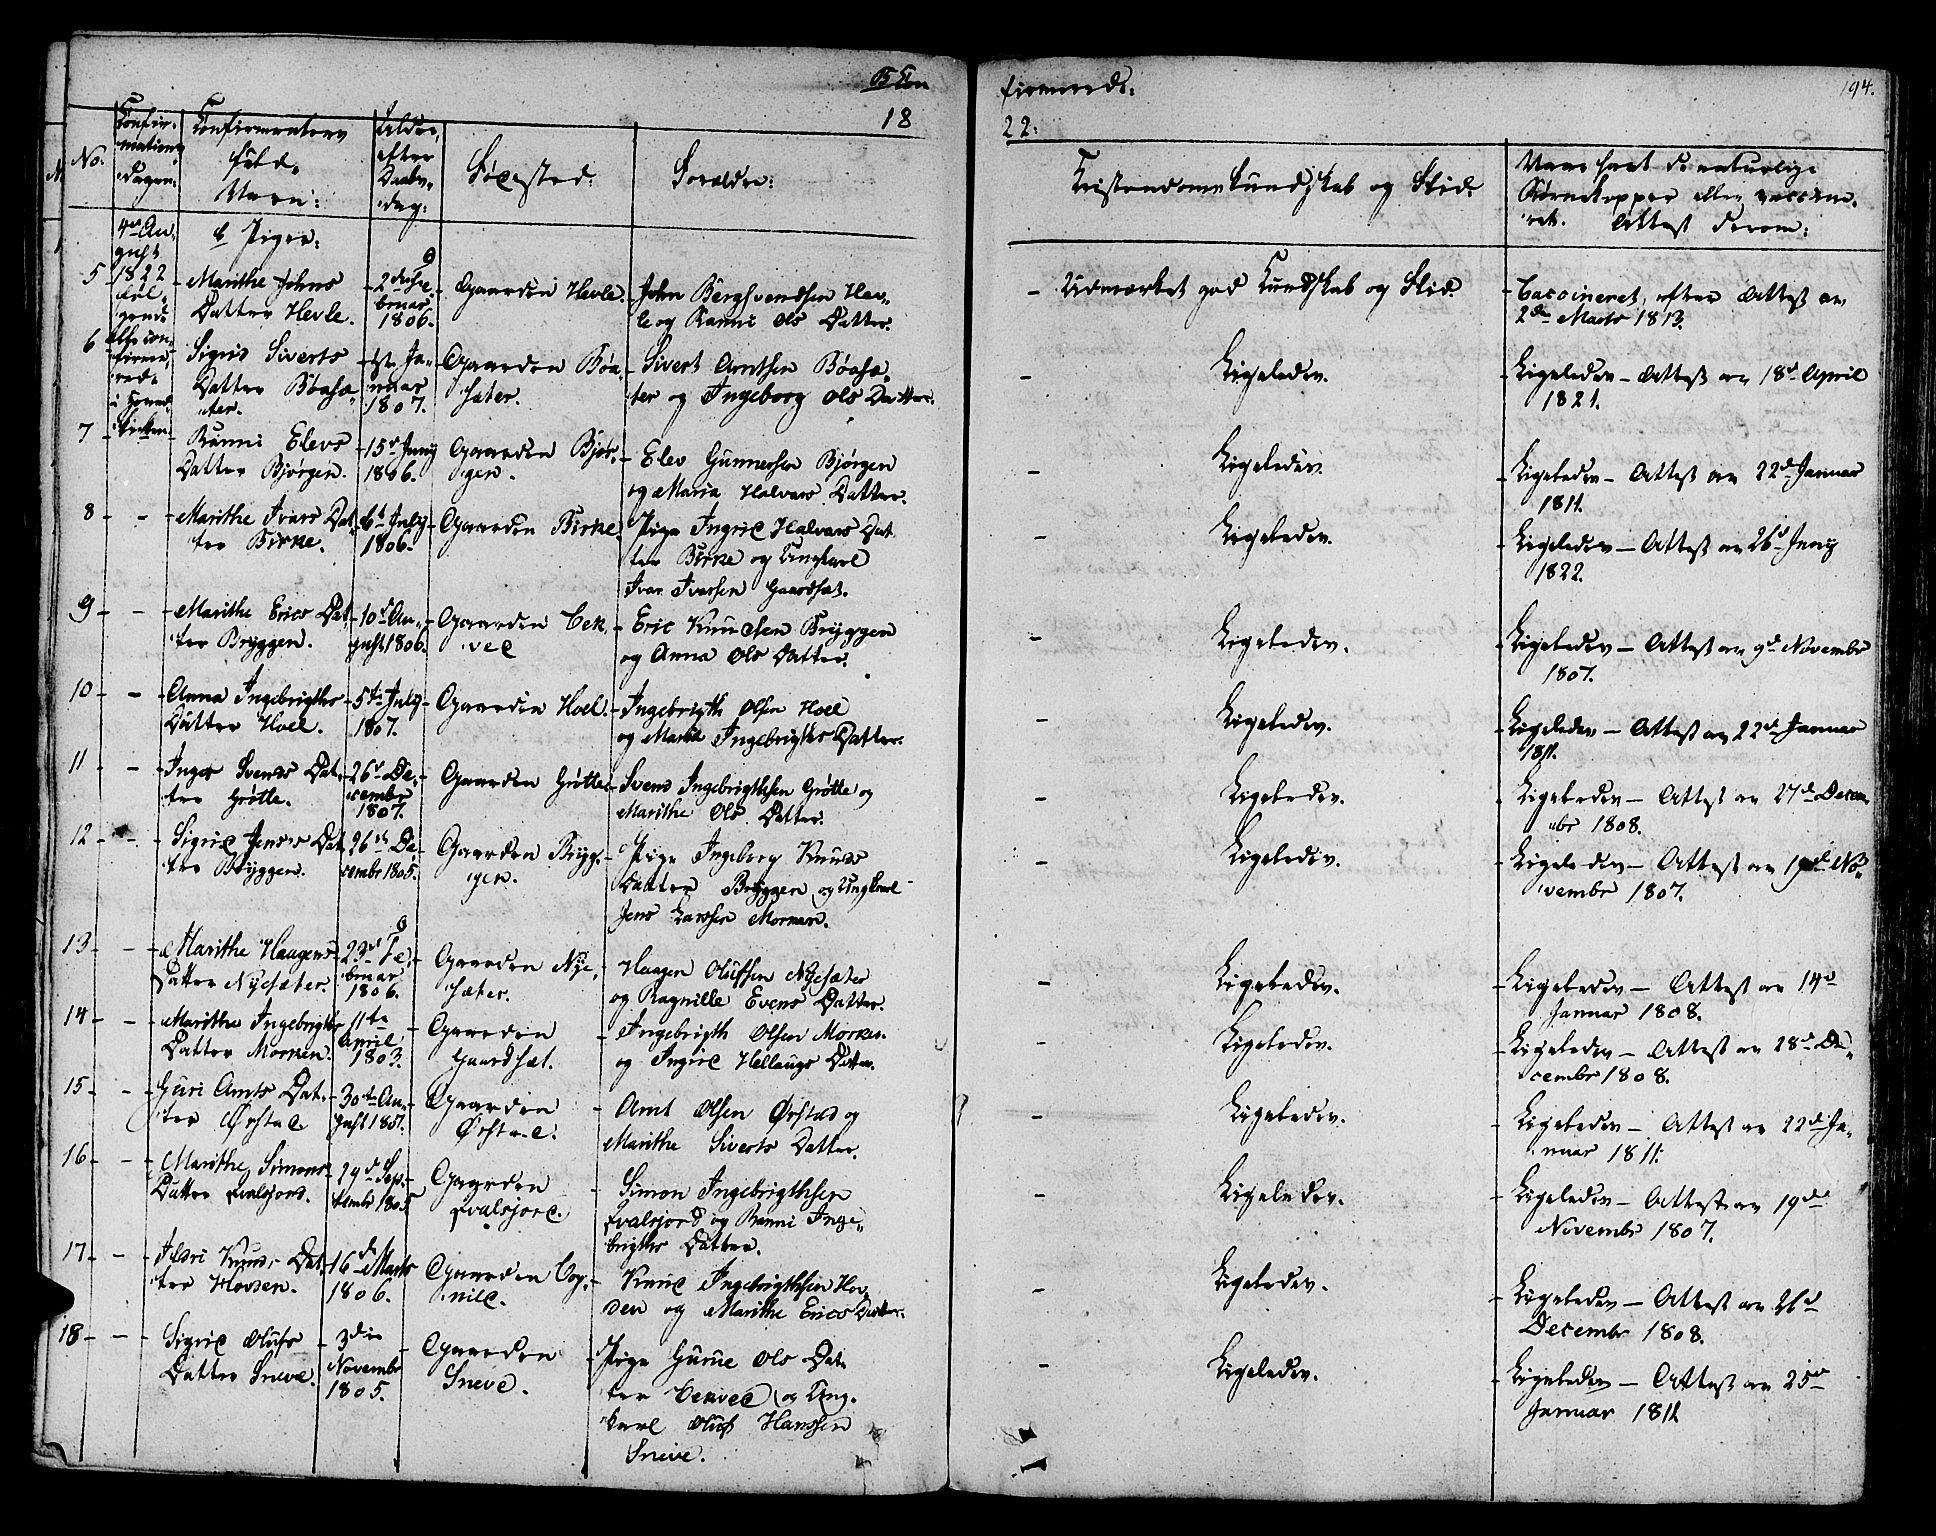 B Con
firmerede:
194.
18
22:
No.
Confir-
mations
Dagen:
Confirmentens
fulde
Navn:
Alder,
efter
Daabs-
dag:
Opholdssted:
Forældre:
Kristendoms Kundskab og Flid:
Vaar havt de naturlige
Børnekopper eller vaccine-
ret. Attest derom:
4de Au-
gust
1822
b Piger:
5
Marithe Johns
Datter Hevle.
2den Fe-
bruar
1806.
Gaarden Hevle.
John Bergsvendsen Hev-
le og Ranni Ols Datter.
Udmærket god Kundskab og Flid.
Vaccineret, efter Attest av
2den Marts 1813.
6
Sigrid Siverts
Datter Böasæ-
ter.
1ste Ja-
nuar
1807.
Gaarden Böa-
sæter.
Sivert Arntsen Böasæ-
ter og Ingeborg Ols Datter.
Ligeleden.
Ligeleden – Attest av 18d April
1821.
7
Ranni Elevs
Datter Björgen.
15d Juny
1806.
Gaarden Björ-
gen.
Elev Gunnersen Björgen
og Maria Halvars Datter.
Ligeleden.
Ligeleden – Attest av 22d Januar
1811.
8 - -
Marithe Ivars Dat-
ter Birke.
6d July
1806.
Gaarden Birke.
Pige Ingrid Halvars Dat
ter Birke og Ungkarl
Ivar Ivarsen Gaardsæt.
Ligeleden.
Ligeleden – Attest av 26d Juny
1822.
9 - -
Marithe Erics Dat-
ter Bryggen.
10d Au-
gust 1806.
Gaarden Vek-
ved
Eric Knudsen Bryggen
og Anna Ols Datter.
Ligeleden.
Ligeleden – Attest av 9d Novembr
1807.
10 - -
Anna Ingebrigths
Datter Hoel.
5te July
1807.
Gaarden Hoel.
Ingebrigth Olsen Hoel
og Marit Ingebrigths Datter.
Ligeleden.
Ligeleden – Attest av 22d Januar
1811.
11 - -
Inger Svends Dat-
ter Grötte.
26d De-
cembr
1807.
Gaarden Grötte
Svend Ingebrigthsen Grötte og
Marithe Ols Datter.
Ligeleden.
Ligeleden – Attest av 27d Decem-
br 1808.
12 - -
Sigrid Jenses Dat
ter Bryggen.
26d De-
cembr 1805.
Gaarden Bryg-
gen.
Pige Ingeborg Knuds
Datter Bryggen og Ungkarl
Jens Larssen Morken.
Ligeleden.
Ligeleden – Attest av 19d No-
vembr 1807.
13 - -
Marithe Haagens
Datter Nyesæter.
23d Fe-
bruar
1806.
Gaarden Nye-
sæter.
Haagen Olufsen Nyesæter
og Ragnille Evens Datter.
Ligeleden.
Ligeleden – Attest av 14d
Januar 1808.
14 - -
Marithe Ingebrigths
Datter Morken.
11te
April
1803.
Gaarden
Gaardsæt.
Ingebrigth Olsen Morken
og Ingrid Hellaugs Datter.
Ligeleden.
Ligeleden – Attest av 28d De-
cembr 1808.
15 - -
Guri Arnts Dat-
ter Örstad
30d Au-
gust 1807.
Gaarden
Örstad.
Arnt Olsen Örstad og
Marithe Siverts Datter.
Ligeleden.
Ligeleden – Attest av 22d Ja-
nuar 1811.
16 - -
Marithe Simons
Datter Qvalsjord.
29d Sep-
tembr 1805
Gaarden
Qvalsjord.
Simon Ingebrigthsen
Qvalsjord og Ranni Inge-
brigths Datter.
Ligeleden.
Ligeleden – Attest av 19de
Novembr 1807.
17 - -
Ildri Knuds Dat-
ter Hovden.
16d Marts
1806.
Gaarden Vog-
nild.
Knud Ingebrigthsen Hov-
den og Marithe Erics Datter.
Ligeleden.
Ligeleden – Attest av 26d
Decembr 1808.
18 - -
Sigrid Olufs
Datter Sneve.
3die
Novembr
1805.
Gaarden
Sneve.
Pige Gurue Ols Dat-
ter Vekved og Ung-
karl Oluf Hanssen
Sneve.
Ligeleden.
Ligeleden – Attest av 25d
Januar 1811